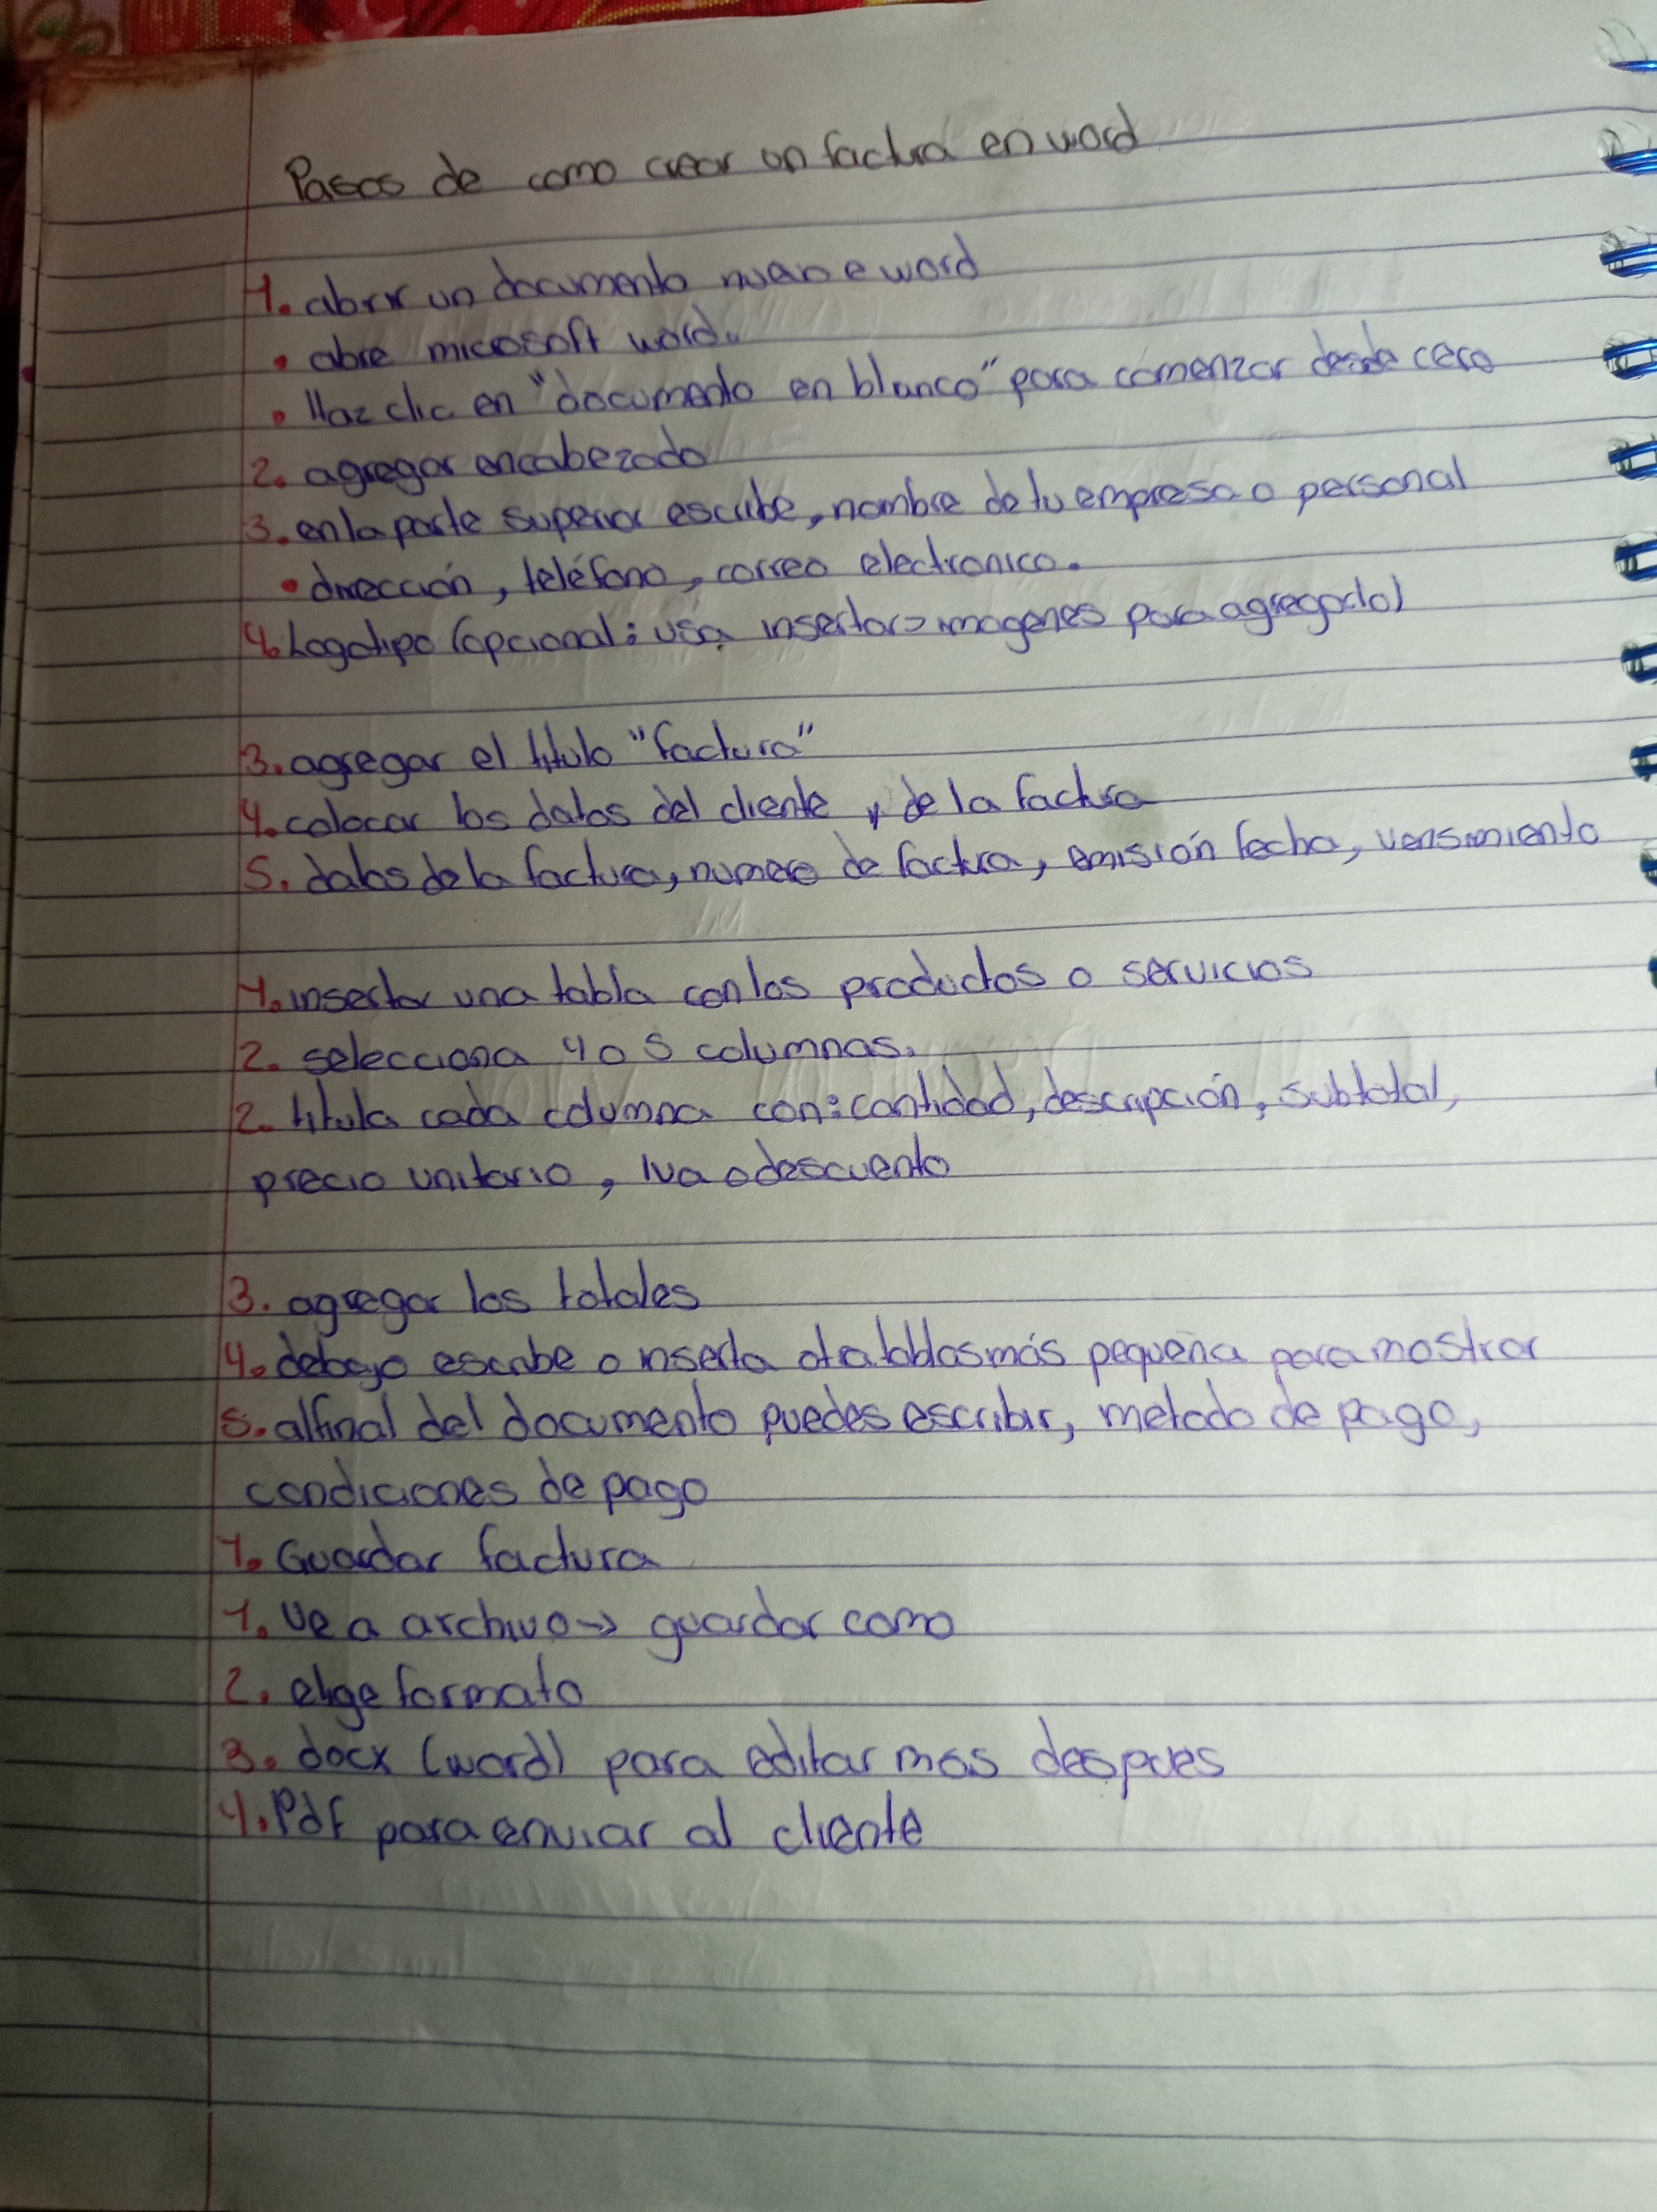 Pasos de como crear un factura en word
1. abrir un documento nuevo e word
• abre microsoft word.
• Haz clic en "documento en blanco" para comenzar desde cero
2. agregar encabezado
3. en la parte superior escribe, nombre de tu empresa o personal
• dirección, teléfono, correo electronico.
4. Logotipo (opcional: usa insertar> imagenes para agregado)
3. agregar el titulo "factura"
4. colocar los datos del cliente y de la factura
5. datos de la factura, numero de factura, emisión fecha, vensimiento
1. insertar una tabla con los productos o servicios
2. selecciona 4 o 5 columnas.
2. titula cada columna con: cantidad, descripción, subtotal,
precio unitario, Iva o descuento
3. agregar los totales
4. debajo escribe o inserta otra tablas más pequeña para mostrar
5. al final del documento puedes escribir, metodo de pago,
condiciones de pago
1. Guardar factura
1. Ve a archivo → guardar como
2. elige formato
3. docx (word) para editar mas despues
4. Pdf para enviar al cliente